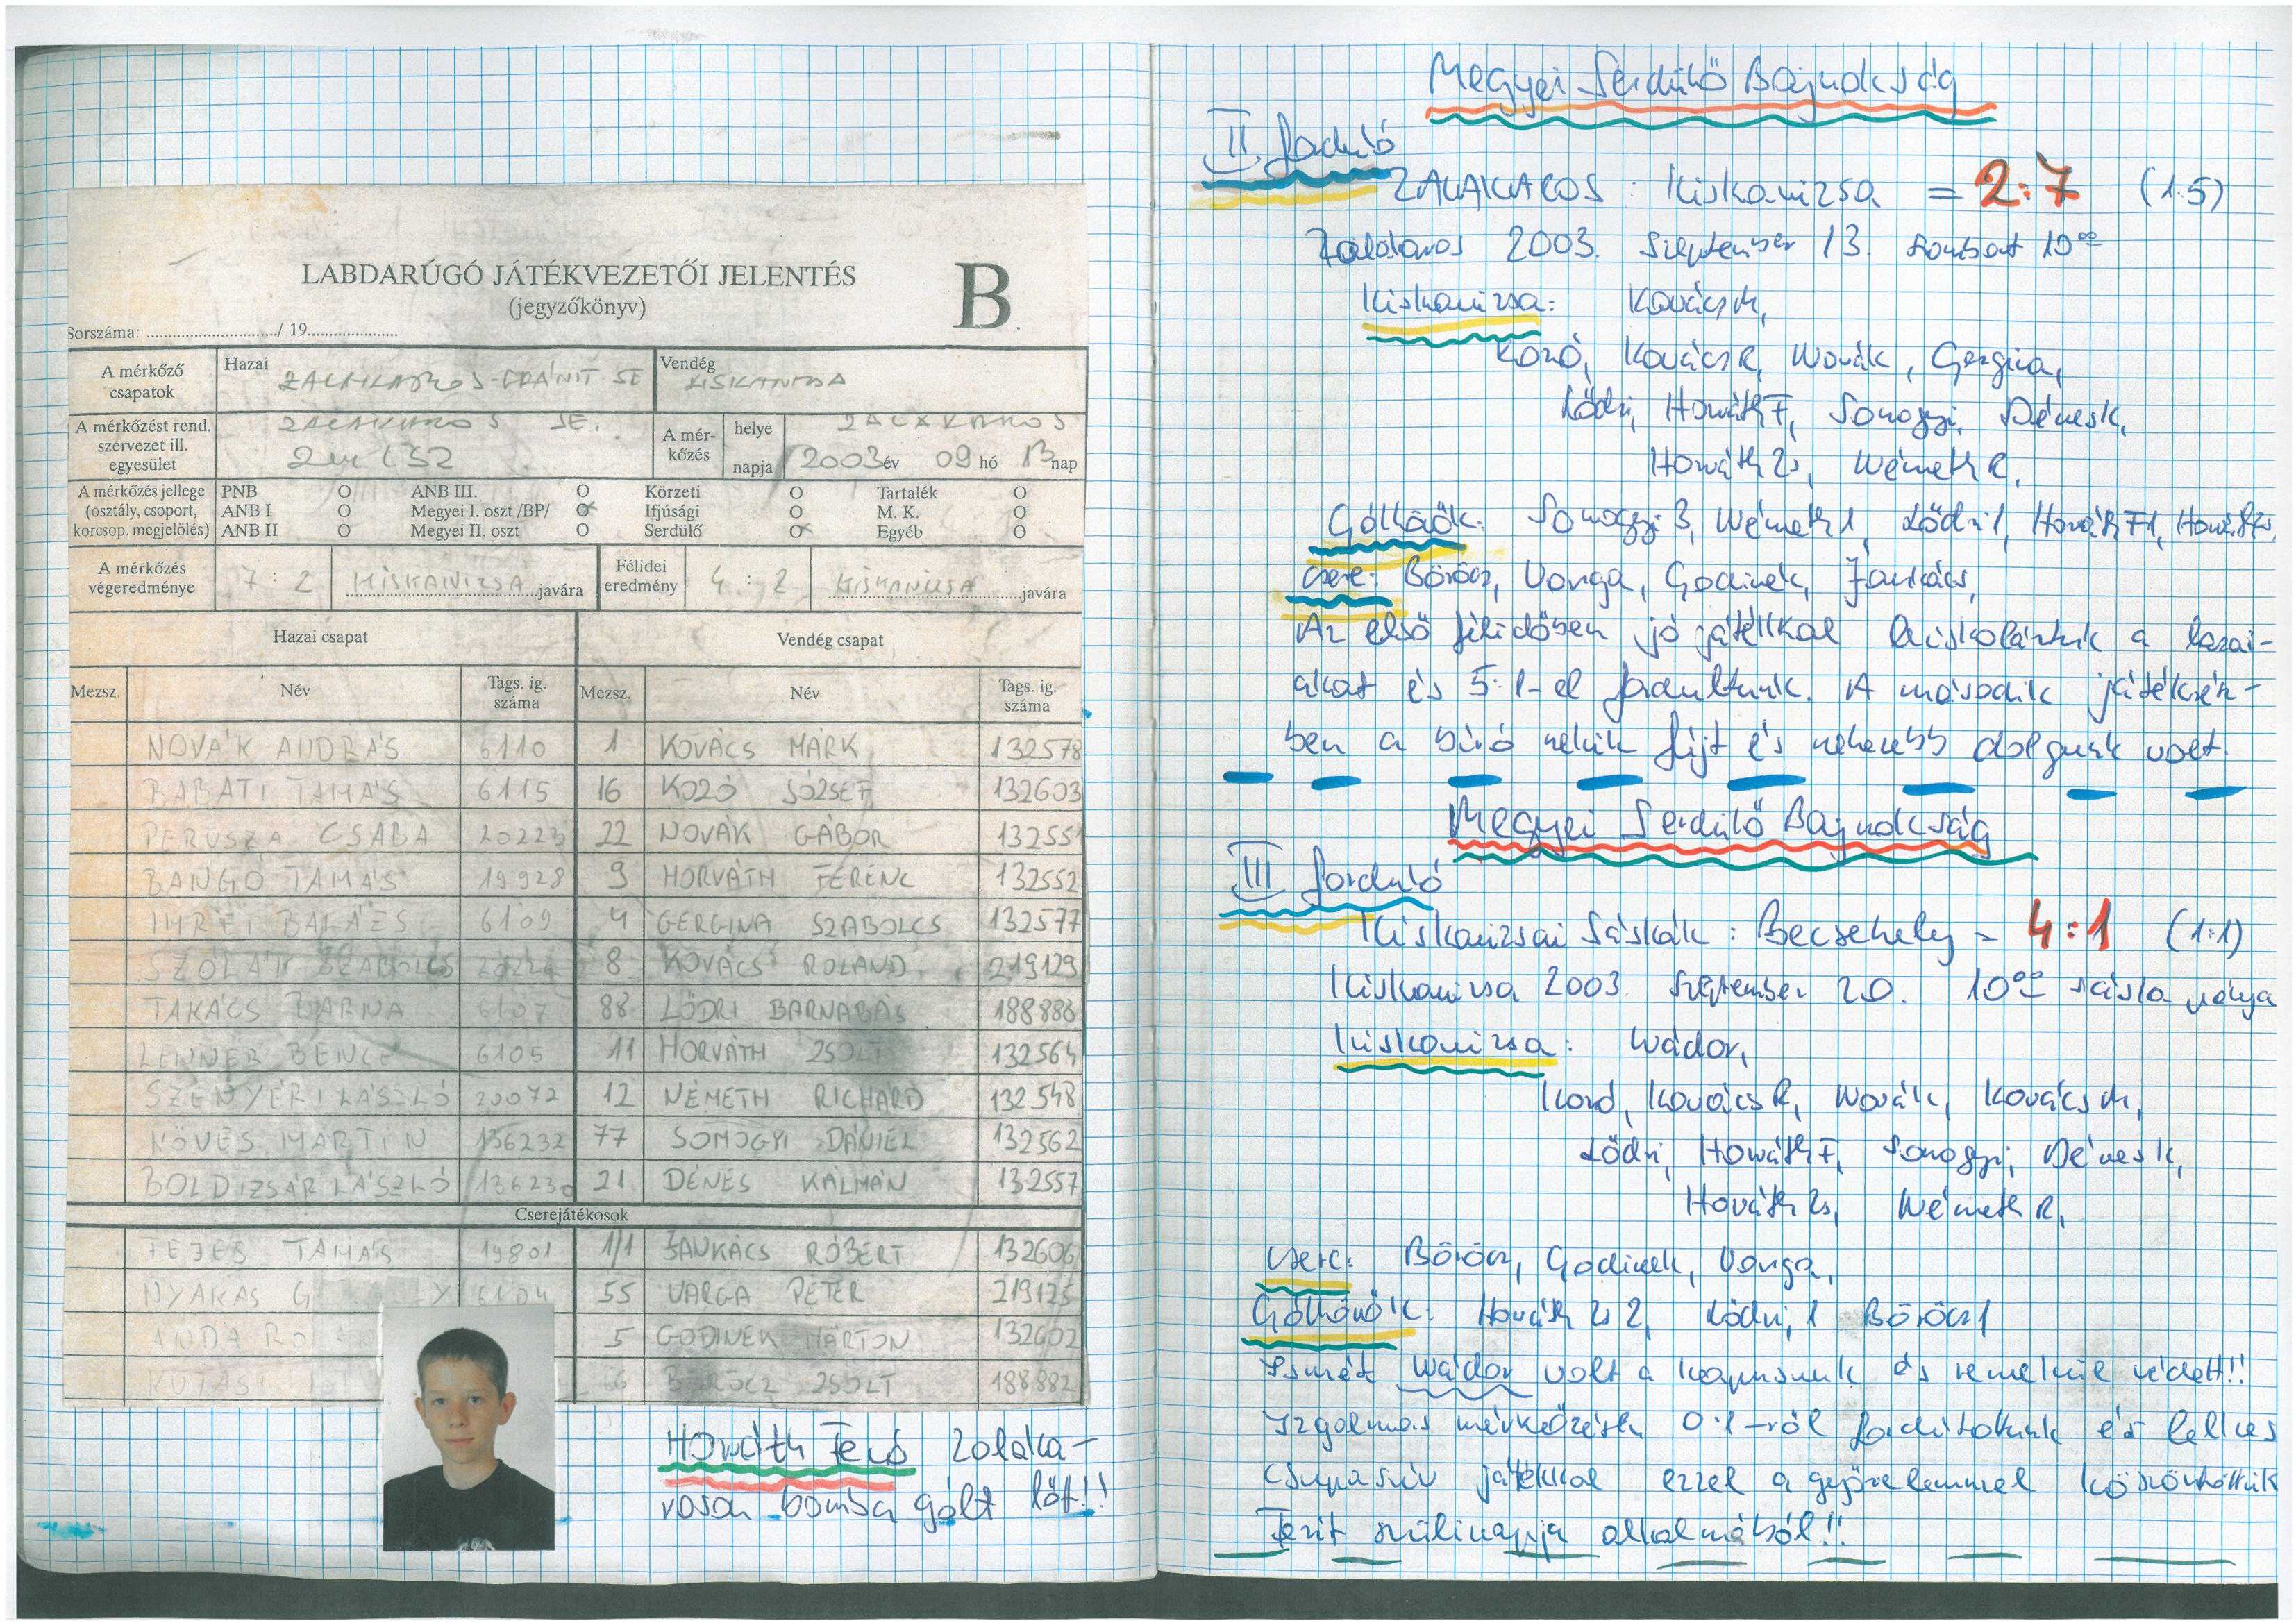 LABDARÚGÓ JÁTÉKVEZETŐI JELENTÉS
(jegyzőkönyv)
B
Sorszáma: ............................./ 19......................
A mérkőző csapatok
Hazai
ZALAKAROS-GRÁNIT SE
Vendég
KISKANIZSA
A mérkőzést rend. szervezet ill. egyesület
ZALAKAROS SE.
A mérkőzés
helye
ZALAKAROS
napja
2003 év 09 hó 13 nap
A mérkőzés jellege (osztály, csoport, korcsop. megjelölés)
PNB O ANB III. O Körzeti O Tartalék O
ANB I O Megyei I. oszt /BP/ O Ifjúsági O M. K. O
ANB II O Megyei II. oszt O Serdülő O Egyéb O
A mérkőzés végeredménye
7 : 2 KISKANIZSA javára
Félidei eredmény
4 : 2 KISKANIZSA javára
Hazai csapat Vendég csapat
Mezsz. Név Tags. ig. száma Mezsz. Név Tags. ig. száma
NOVÁK ANDRÁS 6110 1 KOVÁCS MÁRK 132578
BABATI TAMÁS 6115 16 KOZÓ JÓZSEF 132603
PERUSZA CSABA 20223 22 NOVÁK GÁBOR 132551
BANGÓ TAMÁS 19928 9 HORVÁTH FERENC 132552
IMREI BALÁZS 6109 4 GERGINA SZABOLCS 132577
SZABOLCS 8 KOVÁCS ROLAND 219129
TAKÁCS BARNA 6107 88 LŐDRI BARNABÁS 188886
LENNER BENCE 6105 11 HORVÁTH ZSOLT 132564
SZENYÉRI LÁSZLÓ 20072 12 NÉMETH RICHÁRD 132548
KÖVES MARTIN 136232 77 SOMOGYI DÁNIEL 132562
BOLDIZSÁR LÁSZLÓ 136230 21 DÉNES KÁLMÁN 132557
Cserejátékosok
FEJES TAMÁS 19801 1/1 JANKÁCS RÓBERT 132606
NYAKAS G Y 6104 55 VARGA PÉTER 219125
ANDA RO 5 GODINEK MÁRTON 132602
KUTASI 6 BÖRÖCZ ZSOLT 188882
Horváth Fecó Zalaka-
roson bomba gólt lőtt!!
Megyei Serdülő Bajnokság
II. forduló
ZALAKAROS : Kiskanizsa = 2:7 (1:5)
Zalakaros 2003. Szeptember 13. Szombat 10⁰⁰
Kiskanizsa: Kovács M,
Kozó, Kovács R, Novák, Gergina,
Lődri, Horváth F, Somogyi, Dénes K,
Horváth Zs, Németh R,
Góllövők: Somogyi 3, Németh 1, Lődri 1, Horváth F 1, Horváth Zs.
Csere: Böröcz, Varga, Godinek, Jankács,
Az első félidőben jó játékkal kiiskoláztuk a hazai-
akat és 5:1-el fordultunk. A második játékrész-
ben a bíró nekik fújt és nehezebb dolgunk volt.
Megyei Serdülő Bajnokság
III forduló
Kiskanizsai Sáskák : Becsehely = 4:1 (1:1)
Kiskanizsa 2003. Szeptember 20. 10⁰⁰ sáska pálya
Kiskanizsa: Nádor,
Kozó, Kovács R, Novák, Kovács M,
Lődri, Horváth F, Somogyi, Dénes K,
Horváth Zs, Németh R,
Csere: Böröcz, Godinek, Varga,
Góllövők: Horváth Zs 2, Lődri, 1 Böröcz 1
Ismét Nádor volt a kapusunk és remekül védett!!
Izgalmas mérkőzésen 0:1-ről fordítottunk és lelkes
csupaszív játékkal ezzel a győzelemmel köszöntöttük
szülinapja alkalmából!!